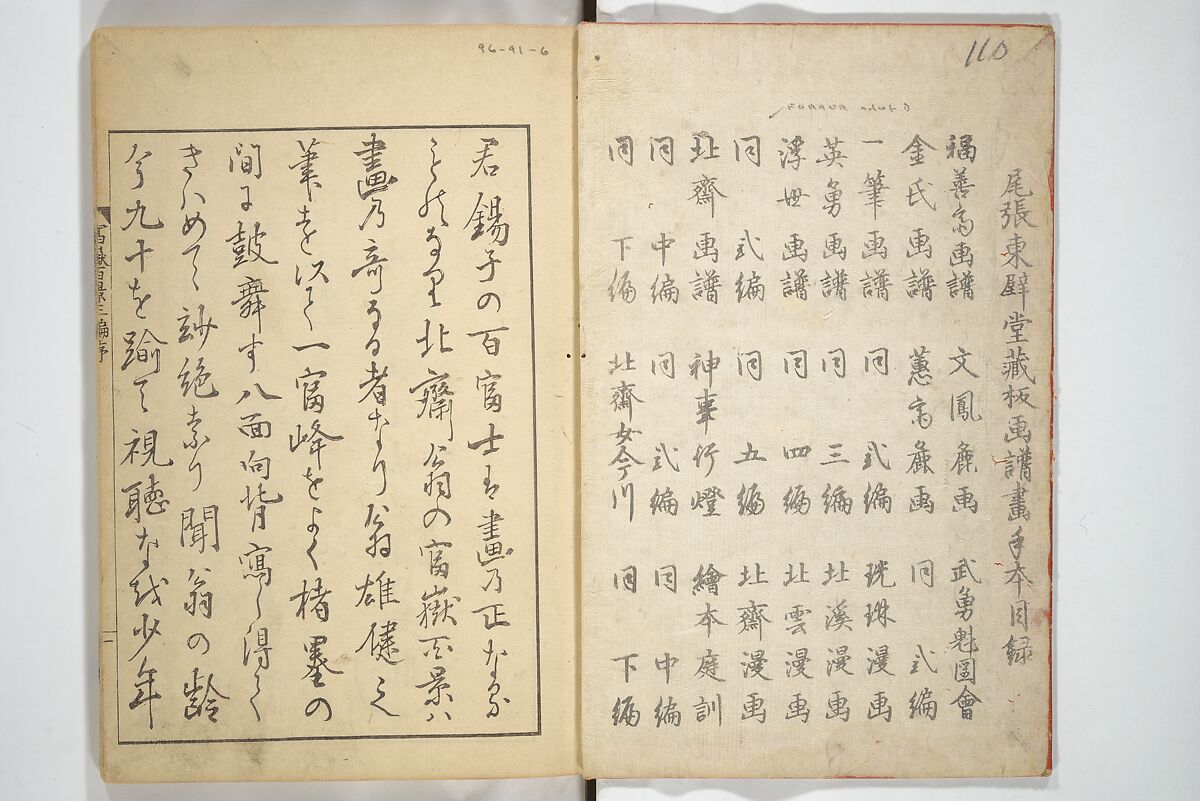 110
尾張東壁堂藏板画譜畫手本目録
福善斎画譜 文鳳麁画 武勇魁図會
金氏画譜 蕙斎麁画 同 弍編
一筆画譜 同 弍編 琉珠漫画
英勇画譜 同 三編 北溪漫画
浮世画譜 同 四編 北雲漫画
同 弍編 同 五編 北齋漫画
北齋画譜 神事行燈 繪本庭訓
同 中編 同 弍編 同 中編
同 下編 北齋女今川 同 下編
96-91-6
君錫子の百富士は畫乃正なる
ものなり北齋翁の富嶽百景ハ
畫乃奇なる者なり翁雄健之
筆を以て一富峰をよく楮墨の
間に鼓舞す八面向背寫し得て
きハめて妙絶なり聞翁の齢
今九十を踰て視聴なを少年
富嶽百景三編序
一